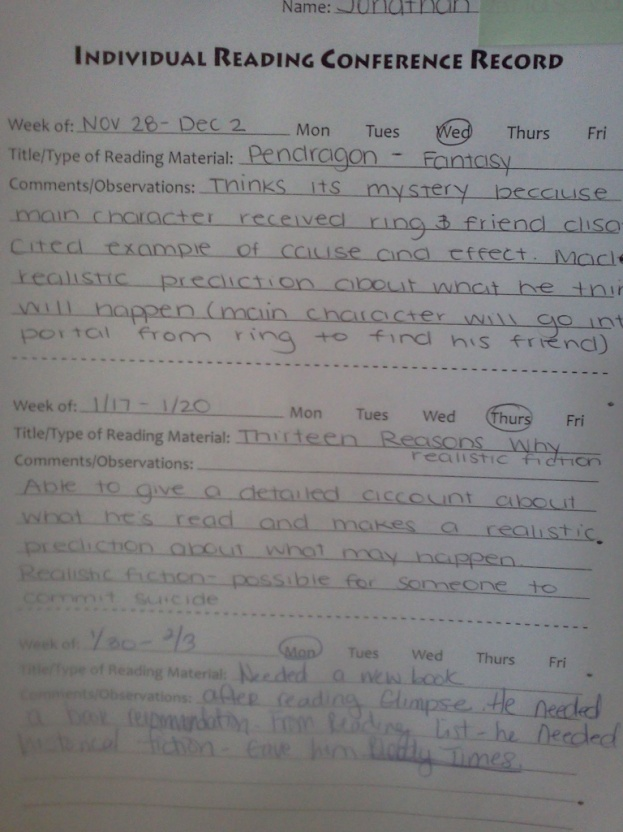 Name: Jonathan
INDIVIDUAL READING CONFERENCE RECORD
Week of: Nov 28 - Dec 2 Mon Tues Wed Thurs Fri
Title/Type of Reading Material: Pendragon - Fantasy
Comments/Observations: Thinks its mystery because
main character received ring & friend disa
Cited example of cause and effect. Mad
realistic prediction about what he thin
will happen (main character will go int
portal from ring to find his friend)
Week of: 1/17 - 1/20 Mon Tues Wed Thurs Fri
Title/Type of Reading Material: Thirteen Reasons Why
realistic fiction
Comments/Observations:
Able to give a detailed account about
what he's read and makes a realistic
prediction about what may happen.
Realistic fiction - possible for someone to
commit suicide
Week of: 1/30 - 2/3 Mon Tues Wed Thurs Fri
Title/Type of Reading Material: Needed a new book
Comments/Observations: after reading Glimpse. He needed
a book recommendation. From Reading List - he needed
historical fiction - Gave him Deadly Times.